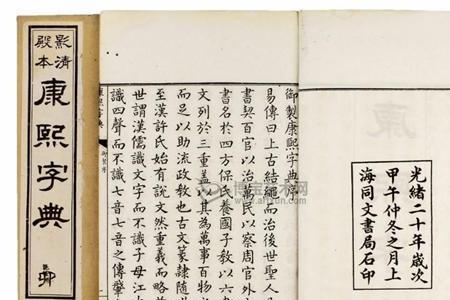 影清
殿本
康熙字典
光緒二十年歲次
甲午仲冬之月上
海同文書局石印
御製康熙字典序
易傳曰上古結繩而治後世聖人易
書契百官以治萬民以察周官外
書名於四方保氏養國子教以六
文列於三重蓋以其為萬事百物
而足以助流政教也古文篆隸隨
至漢許氏始有說文然重義而略
世謂漢儒識文字而不識子母江
識四聲而不識七音七音之傳肇
康熙字典